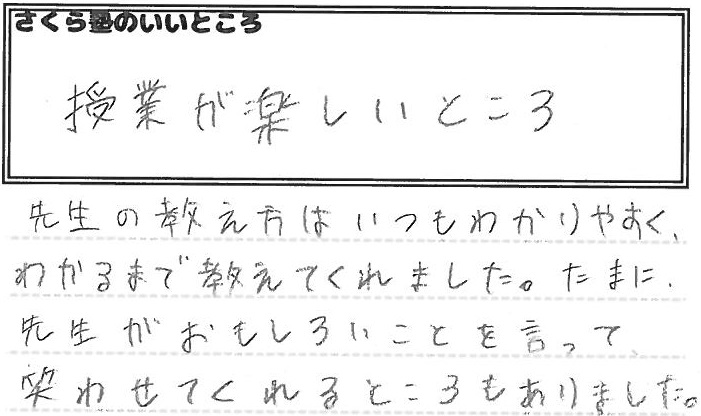 さくら塾のいいところ
授業が楽しいところ
先生の教え方はいつもわかりやすく、
わかるまで教えてくれました。たまに、
先生がおもしろいことを言って、
笑わせてくれるところもありました。